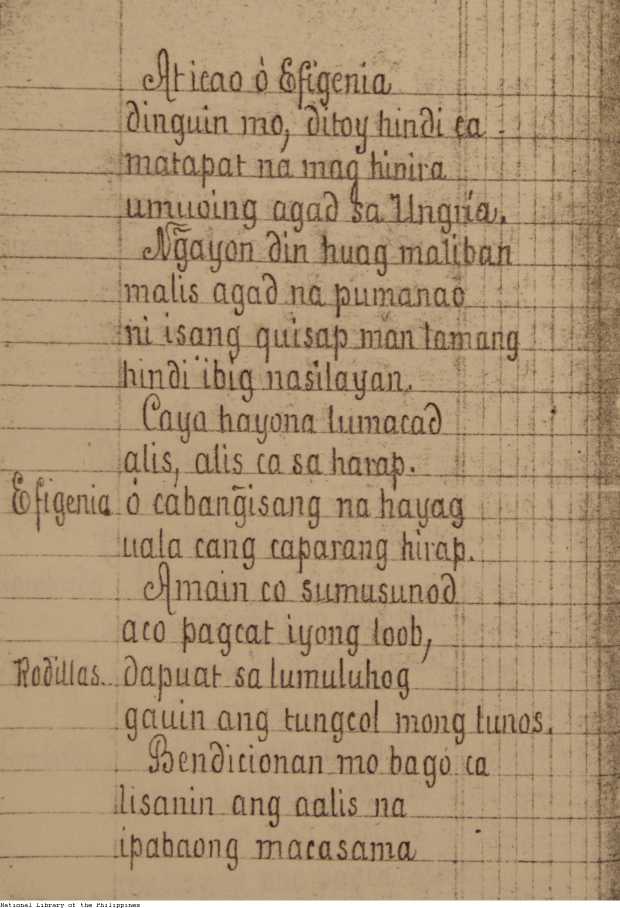 At icao ò Efigenia
dinguin mo, ditoy hindi ca
matapat na mag hinira
umuoing agad sa Ungría.
Ng̃ayon din huag maliban
malis agad na pumanao
ni isang quisap man tamang
hindi ibig nasilayan.
Caya hayona lumacad
alis, alis ca sa harap.
Efigenia ó cabang̃isang na hayag
uala cang caparang hirap.
Amain co sumusunod
aco pagcat iyong loob,
Rodillas.. dapuat sa lumuluhog
gauin ang tungcol mong lunos.
Bendicionan mo bago ca
lisanin ang aalis na
ipabaong macasama
National Library of the Philippines